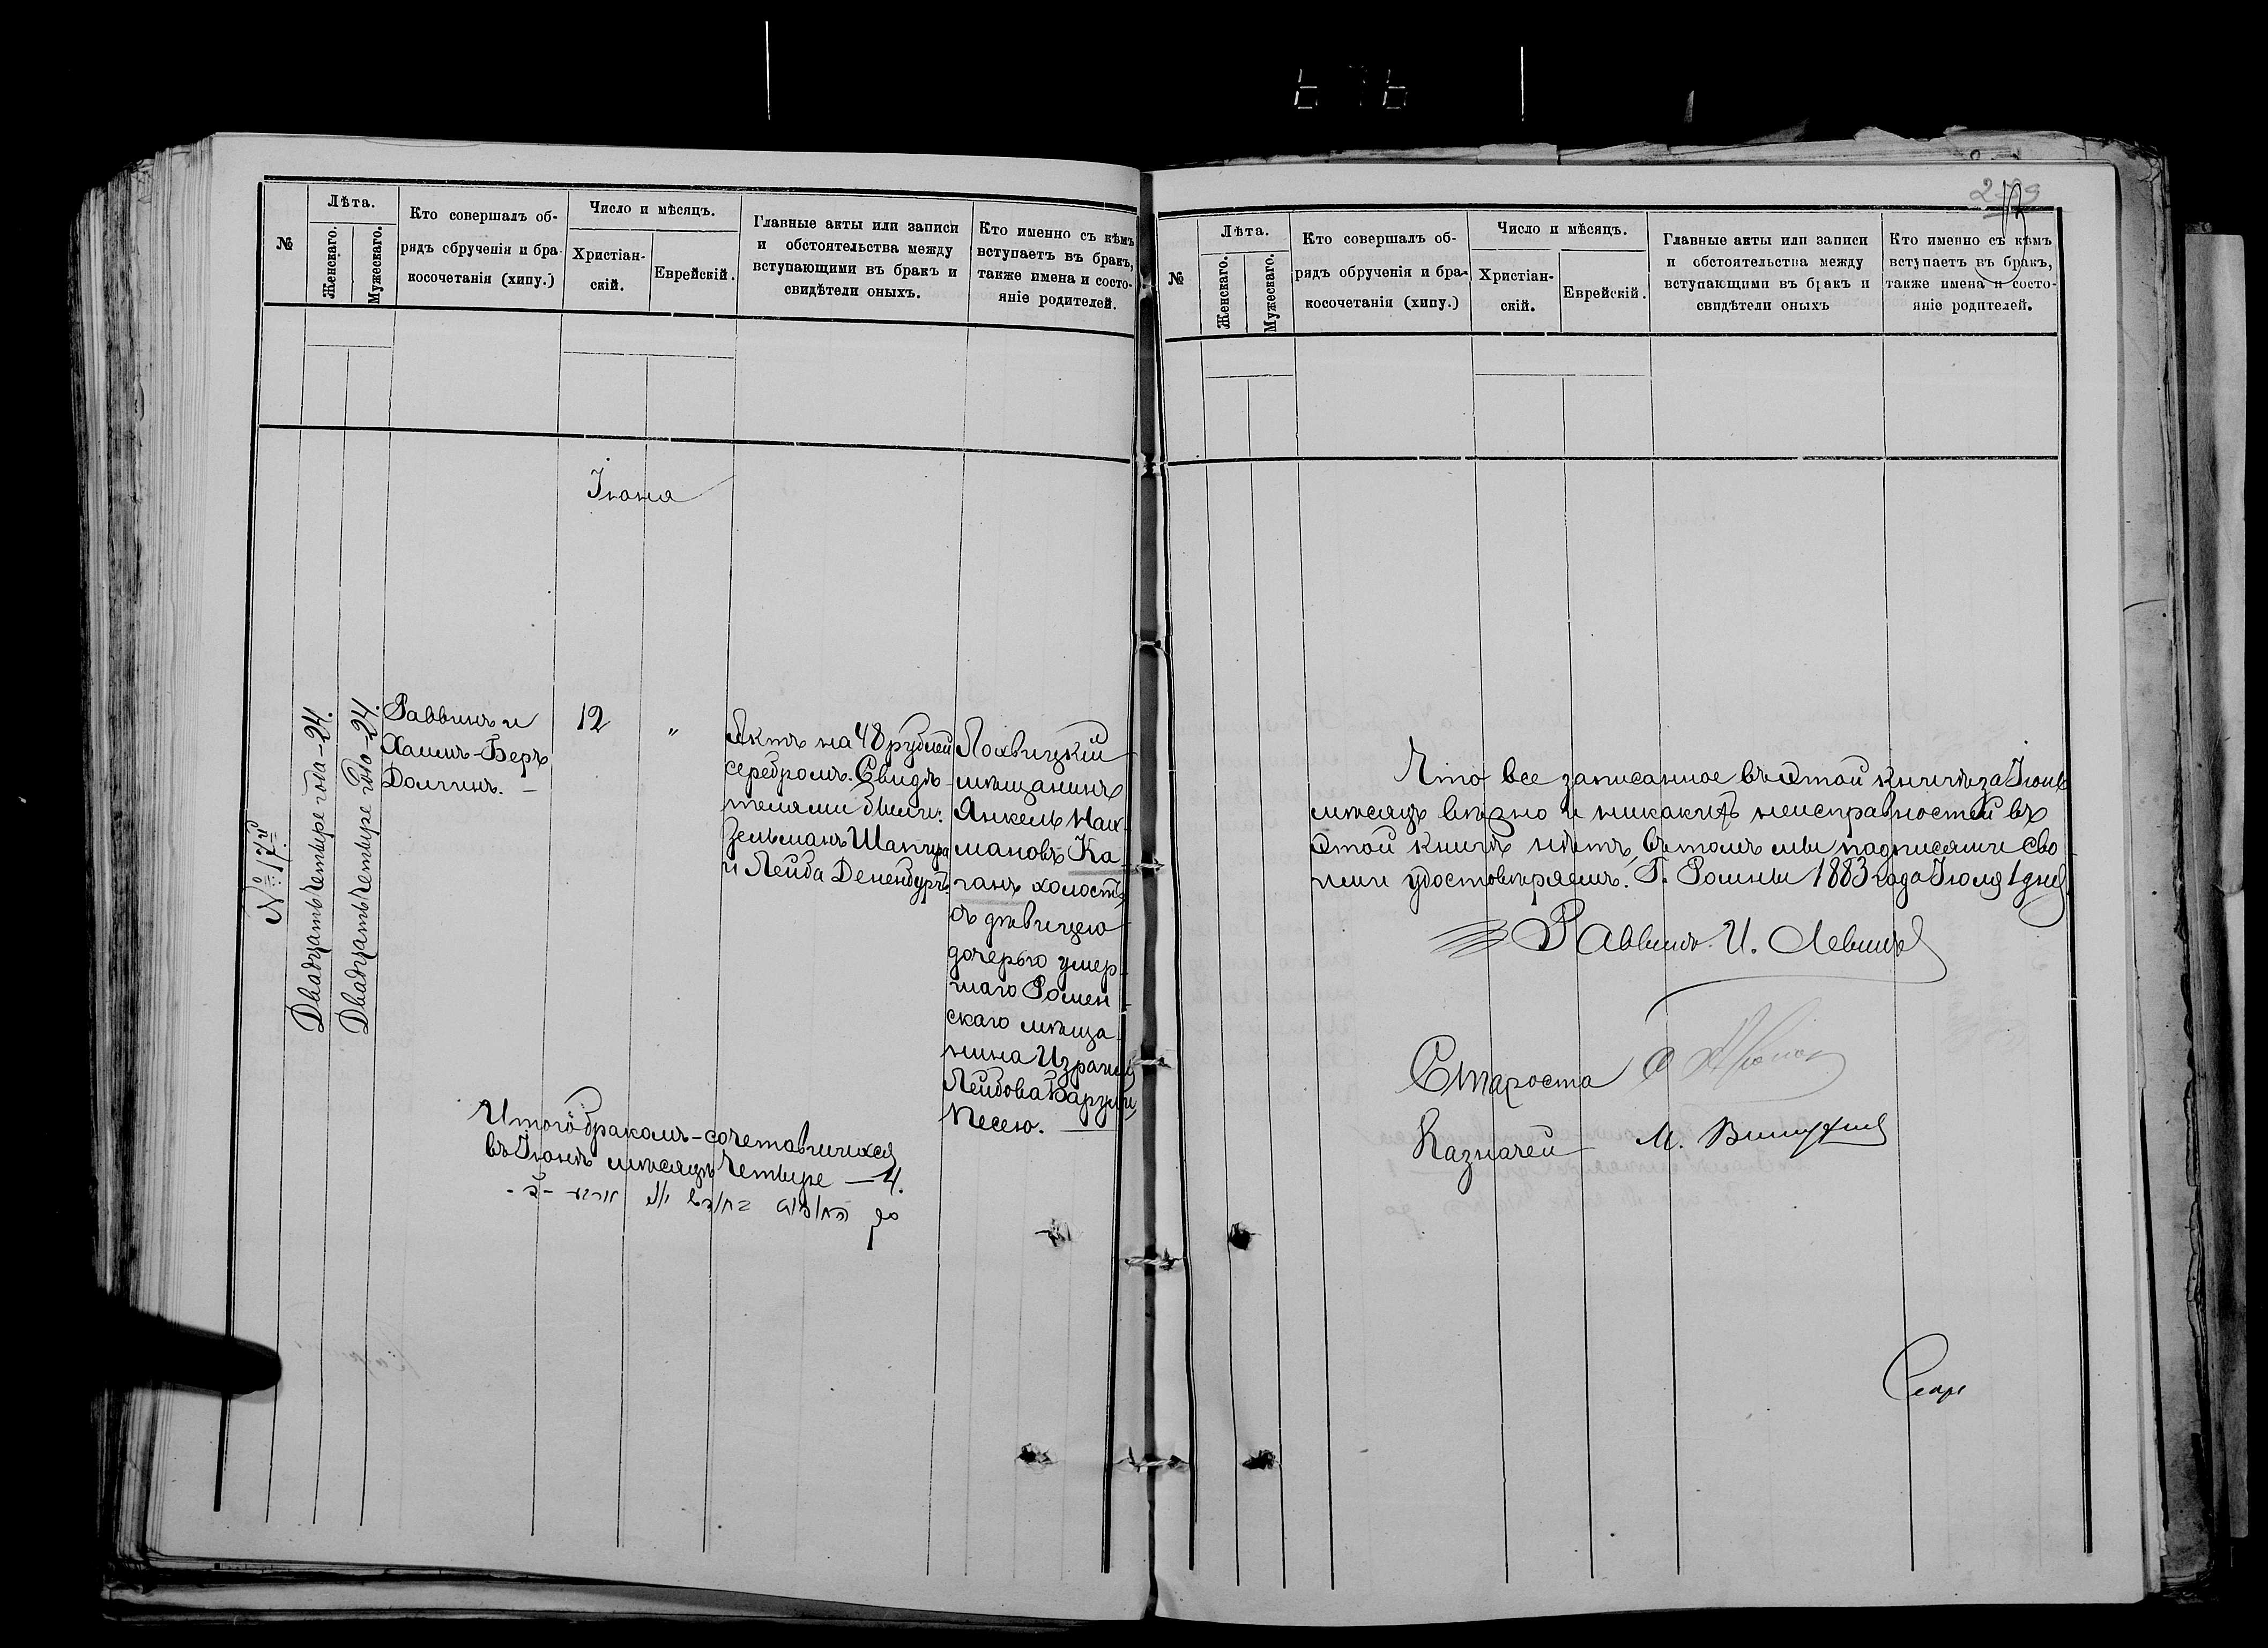 №
Лѣта.
Женскаго.
Мужескаго.
Кто совершалъ об-
рядъ обрученія и бра-
косочетанія (хипу.)
Число и мѣсяцъ.
Христіан-
скій.
Еврейскій.
Главные акты или записи
и обстоятельства между
вступающими въ бракъ и
свидѣтели оныхъ.
Кто именно съ кѣмъ
вступаетъ въ бракъ,
также имена и состо-
яніе родителей.
Іюня
№ 17й
Двадцать четыре года - 24.
Двадцать четыре года - 24.
Раввинъ и
Хаимъ-Беръ
Долгинъ. -
12
"
Актъ на 48 рублей
серебромъ. Свидѣ-
телями были:
Зельманъ Шапира
и Лейба Дененбургъ
Лохвицкій
мѣщанинъ
Янкель Нах-
мановъ Ка-
ганъ холостъ
съ дѣвицею
дочерью умер-
шаго Ромен-
скаго мѣща-
нина Израиля
Лейбова
Песею.
Итого бракомъ-сочетавшихся
въ Іюнѣ мѣсяцѣ четыре - 4.
№
Лѣта.
Женскаго.
Мужескаго.
Кто совершалъ об-
рядъ обрученія и бра-
косочетанія (хипу.)
Число и мѣсяцъ.
Христіан-
скій.
Еврейскій.
Главные акты или записи
и обстоятельства между
вступающими въ бракъ и
свидѣтели оныхъ
Кто именно съ кѣмъ
вступаетъ въ бракъ,
также имена и состо-
яніе родителей.
Что все записанное въ этой книгѣ за Іюнь
мѣсяцъ вѣрно и никакихъ неисправностей въ
этой книгѣ нѣтъ, въ томъ мы подписями сво
ими удостовѣряемъ. Г. Ромны 1883 года Іюля 1 дня
Раввинъ И. Левинъ
Староста
Казначей М.